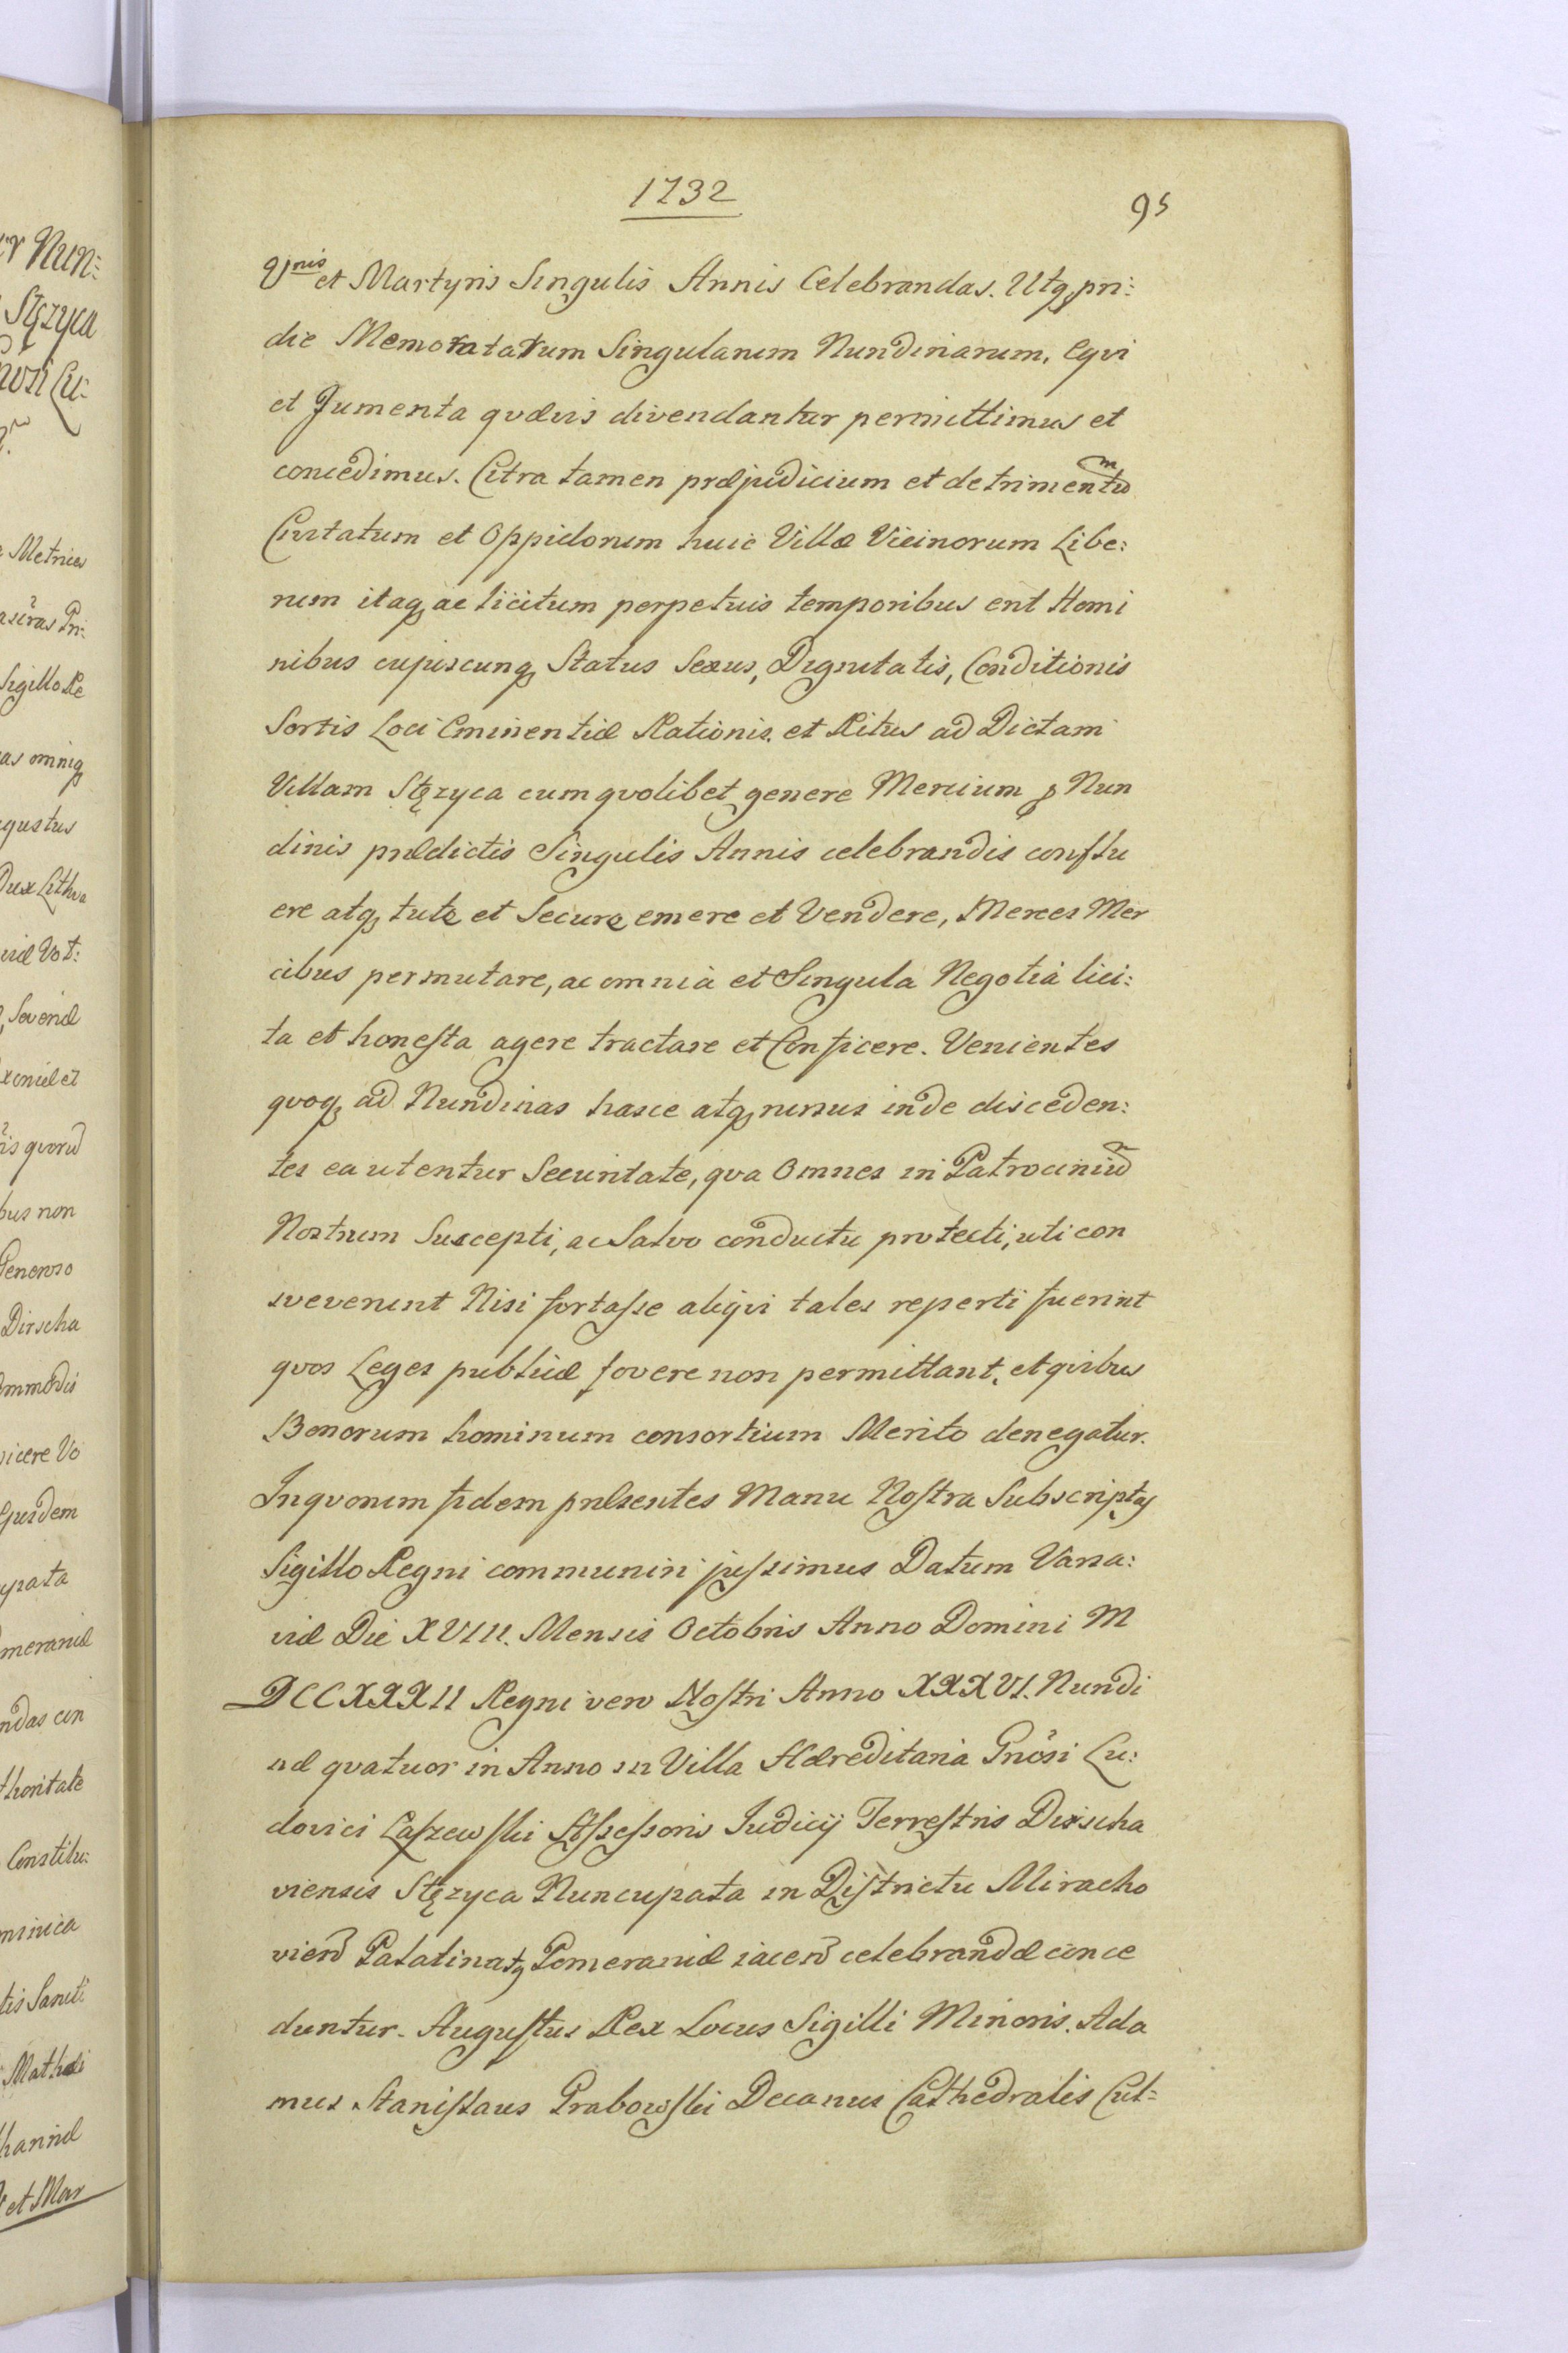 1732
95
Vnis et Martyris Singulis Annis Celebrandas. Utq, pri:
die Memoratarum Singularum Nundinarum, Eqvi
et Jumenta qvævis divendantur permittimus et
concedimus. Citra tamen præjudicium et detrimentũ
Civitatum et Oppidorum huic Villæ Vicinorum Libe:
rum itaq, ac licitum perpetuis temporibus erit Homi
nibus cujuscunq, Status Sexus, Dignitatis, Conditionis
Sortis Loci Eminentiæ Nationis et Ritus ad Dictam
Villam Stęzyca cum qvolibet genere Mercium p Nun
dinis prædictis Singulis Annis celebrandis conflu
ere atq, tute et Secure emere et Vendere, Merces Mer
cibus permutare, ac omnia et Singula Negotia lici:
ta et honesta agere tractare et Conficere. Venientes
qvoq, ad Nundinas hasce atq, rursus inde disceden:
tes ea utentur Securitate, qva Omnes in Patrociniũ
Nostrum Suscepti, ac Salvo conductu protecti, uti con
svevernt Nisi fortasse aliqvi tales reperti fuerint
qvos Leges publicæ fovere non permittant, et qvibus
Bonorum hominum consortium Merito denegatur.
In qvorum fidem præsentes Manu Nostra Subscriptas
Sigillo Regni communiri jussimus Datum Varsa:
viæ Die XVIII. Mensis Octobris Anno Domini M
DCCXXXII Regni vero Nostri Anno XXXVI. Nundi
næ qvatuor in Anno in Villa Hæreditaria Gnosi Lu:
dovici Laszewski Assessoris Judicij Terrestris Dirscha
viensis Stęzyca Nuncupata in Districtu Miracho
vien̄ Palatinatq Pomeraniæ iacen̄ celebrandæ conce
duntur. Augustus Rex Locus Sigilli Minoris. Ada
mus Stanislaus Grabowski Decanus Cathedralis Cul=